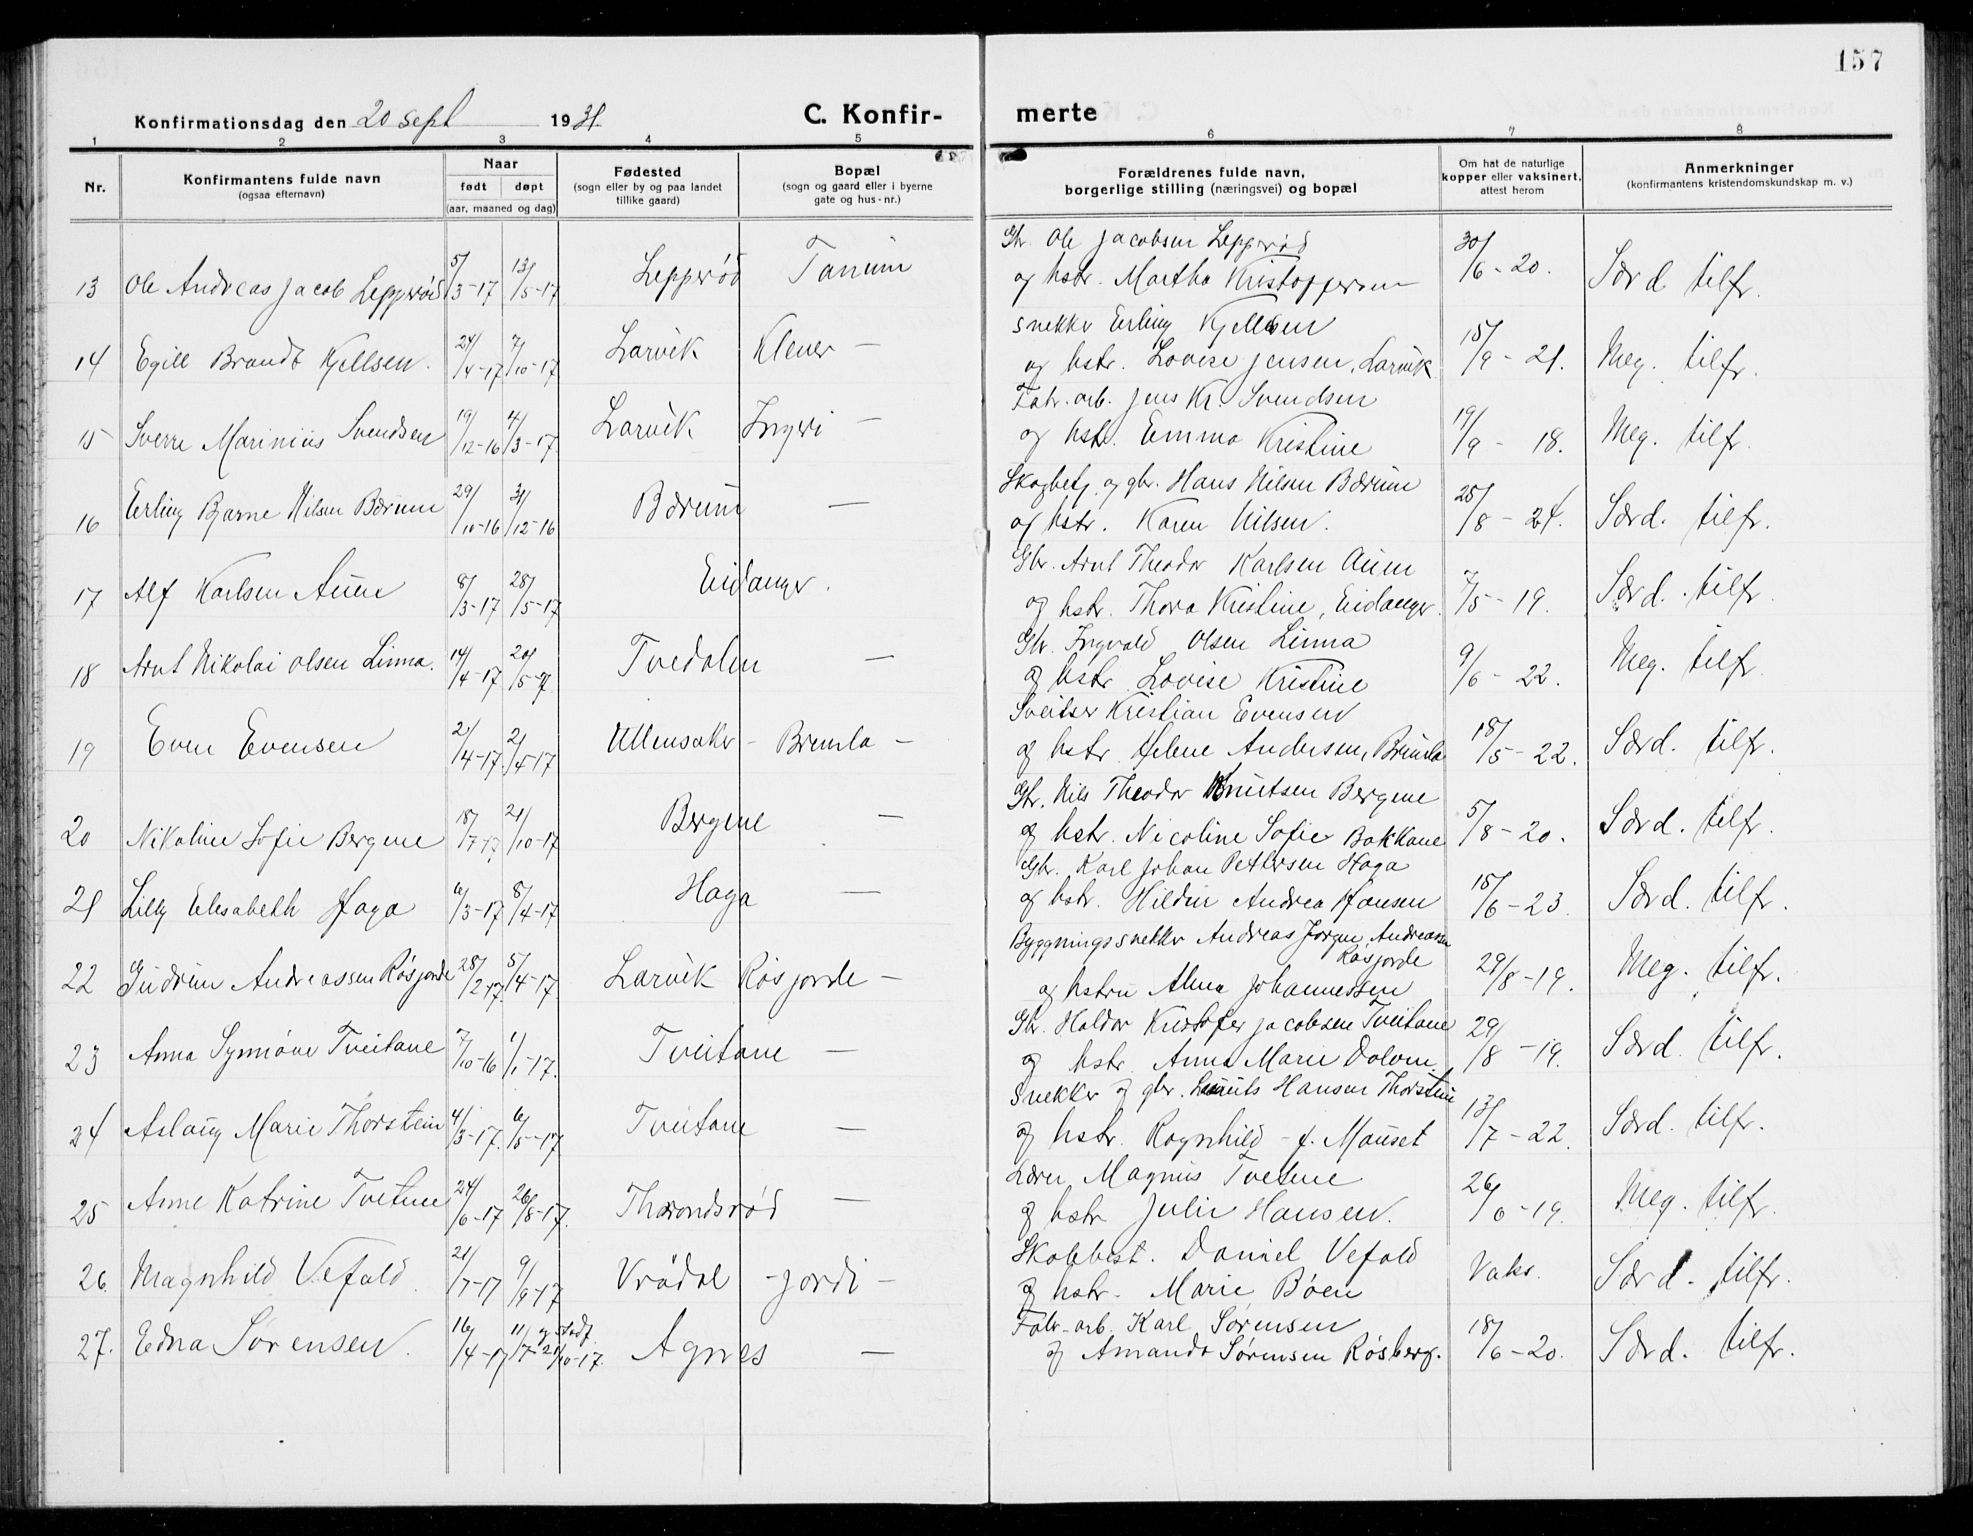 157
Konfirmationsdag den 20 sept 1931
C. Konfirmerte
1 2 3 4 5 6 7 8
Nr.
Konfirmantens fulde navn
(ogsaa efternavn)
Naar
født døpt
(aar, maaned og dag)
Fødested
(sogn eller by og paa landet
tillike gaard)
Bopæl
(sogn og gaard eller i byerne
gate og hus-nr.)
Forældrenes fulde navn,
borgerlige stilling (næringsvei) og bopæl
Om hat de naturlige
kopper eller vaksinert,
attest herom
Anmerkninger
(konfirmantens kristendomskundskap m. v.)
13 Ole Andreas Jacob Lepperød 5/3-17 13/5-17 Lepperød Tanum
Gbr. Ole Jacobsen Lepperød
og hstr. Martha Kristoffersen 30/6-20. Særd tilfr.
14 Egill Brandt Kjellsen. 24/4-17 7/10-17 Larvik Klever -
snekker Erling Kjellsen
og hstr. Lovise Jensen, Larvik 15/9-21. Meg. tilfr.
15 Sverre Marinius Svendsen 19/12-16 4/3-17 Larvik Ingvri -
Fabr. arb. Jens Kr. Svendsen
og hstr. Emma Kristine 19/9-18. Meg. tilfr.
16 Erling Bjarne Nilsen Bærum 29/10-16 31/12-16 Bærum -
Skogbetj. og gbr. Hans Nilsen Bærum
og hstr. Karen Nilsen. 25/8-24. Særd. tilfr.
17 Alf Karlsen Auen 8/3-17 28/5-17 Eidanger.
Gbr. Arnt Theodor Karlsen Auen
og hstr. Thora Kristine, Eidanger. 7/5-19. Særd. tilfr.
18 Arnt Nikolai Olsen Linna. 14/4-17 20/5-17 Tvedalen -
Gbr. Ingvald Olsen Linna
og hstr. Lovise Kristine 9/6-22. Meg. tilfr.
19 Even Evensen 2/4-17. 2/4-17 Ullensaker - Brunla -
Sveitser Kristian Evensen
og hstr. Helene Andersen, Brunla 18/5-22. Særd. tilfr.
20 Nikoline Sofie Bergene 18/7-17 21/10-17 Bergene -
Gbr. Nils Theodor Knutsen Bergene
og hstr. Nicoline Sofie Bakkane 5/8-20. Særd. tilfr.
21 Lilly Elisabeth Haga 6/3-17 8/4-17 Haga -
Gbr. Karl Johan Pettersen Haga
og hstr. Hildur Andrea Hansen 15/6-23. Særd. tilfr.
22 Gudrun Andreassen Røsjorde 28/2-17 5/4-17 Larvik Røsjorde -
Byggningssnekker Andreas Jørgen Andreassen
Røsjorde
og hstru Alma Johannessen 29/8-19. Meg. tilfr.
23 Anna Synnøve Tveitane 7/10-16 1/1-17. Tveitane -
Gbr. Haldor Kristofer Jacobsen Tveitane
og hstr. Anna Marie Dolven. 29/8-19. Særd. tilfr.
24 Aslaug Marie Thorstein 4/3-17. 6/5-17 Tveitane -
Snekker og gbr. Lauritz Hansen Thorstein
og hstr. Ragnhild - f. Mauset 13/7-22. Særd. tilfr.
25 Anne Katrine Tvetene 24/6-17 26/8-17. Tharondsrød -
Lærer Magnus Tvetene
og hstr Julie Hansen. 26/6-19. Meg. tilfr.
26 Magnhild Vefald 21/7-17 9/9-17 Vrådal -Jordi -
Skolebest. Daniel Vefald
og hstr. Marie Bøen Vaks. Særd. tilfr.
27. Edna Sørensen. 16/4-17 11/7 og stadf. 21/10-17. Agnes -
Fabr-arb. Karl Sørensen
og Amanda Sørensen Røsberg. 18/6-20. Særd. tilfr.